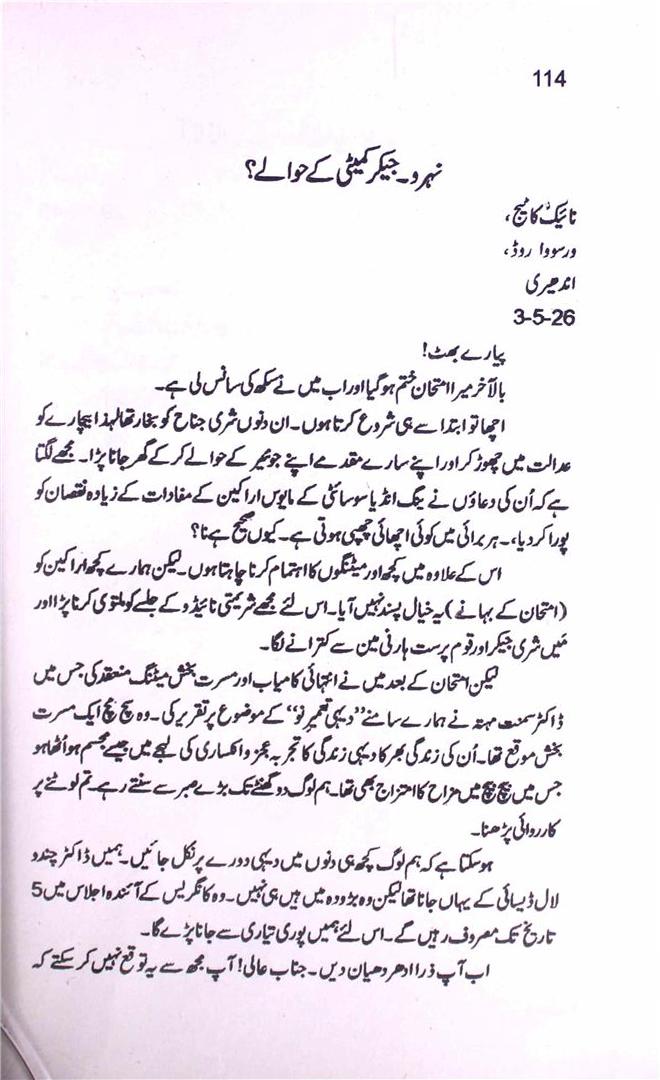 114
نہرو۔ جیکر کمیٹی کے حوالے؟
نائیک کاٹیج،
ورسووا روڈ،
اندھیری
3-5-26
پیارے بھٹ!
بالآخر میرا امتحان ختم ہوگیا اور اب میں نے سکھ کی سانس لی ہے۔
اچھا تو ابتدا سے ہی شروع کرتا ہوں۔ ان دنوں شری جناح کو بخار تھا لہذا بیچارے کو
عدالت میں چھوڑ کر اور اپنے سارے مقدمے اپنے جونیر کے حوالے کرکے گھر جانا پڑا۔ مجھے لگتا
ہے کہ اُن کی دعاؤں نے ینگ انڈیا سوسائٹی کے مایوس اراکین کے مفادات کے زیادہ نقصان کو
پورا کردیا،۔ ہر برائی میں کوئی اچھائی چھپی ہوتی ہے۔ کیوں صحیح ہے نا؟
اس کے علاوہ میں کچھ اور میٹنگوں کا اہتمام کرنا چاہتا ہوں۔ لیکن ہمارے کچھ اراکین کو
(امتحان کے بہانے) یہ خیال پسند نہیں آیا۔ اس لئے مجھے شریمتی نائیڈو کے جلسے کو ملتوی کرنا پڑا اور
میں شری جیکر اور قوم پرست ہارنی مین سے کترانے لگا۔
لیکن امتحان کے بعد میں نے انتہائی کامیاب اور مسرت بخش میٹنگ منعقد کی جس میں
ڈاکٹر سمنت مہتہ نے ہمارے سامنے ”دیہی تعمیر نو“ کے موضوع پر تقریر کی۔ وہ سچ مچ ایک مسرت
بخش موقع تھا۔ اُن کی زندگی بھر کا دیہی زندگی کا تجربہ عجز و انکساری کی لہجے میں جیسے مجسم ہو اُٹھا ہو
جس میں بیچ بیچ میں مزاح کا امتزاج بھی تھا۔ ہم لوگ دو گھنٹے تک بڑے صبر سے سنتے رہے۔ تم لوٹنے پر
کارروائی پڑھنا۔
ہوسکتا ہے کہ ہم لوگ کچھ ہی دنوں میں دیہی دورے پر نکل جائیں۔ ہمیں ڈاکٹر چندو
لال ڈیسائی کے یہاں جانا تھا لیکن وہ بڑودہ میں ہیں ہی نہیں۔ وہ کانگریس کے آئندہ اجلاس میں 5
تاریخ تک مصروف رہیں گے۔ اس لئے ہمیں پوری تیاری سے جانا پڑے گا۔
اب آپ ذرا ادھر دھیان دیں۔ جناب عالی! آپ مجھ سے یہ توقع نہیں کرسکتے کہ